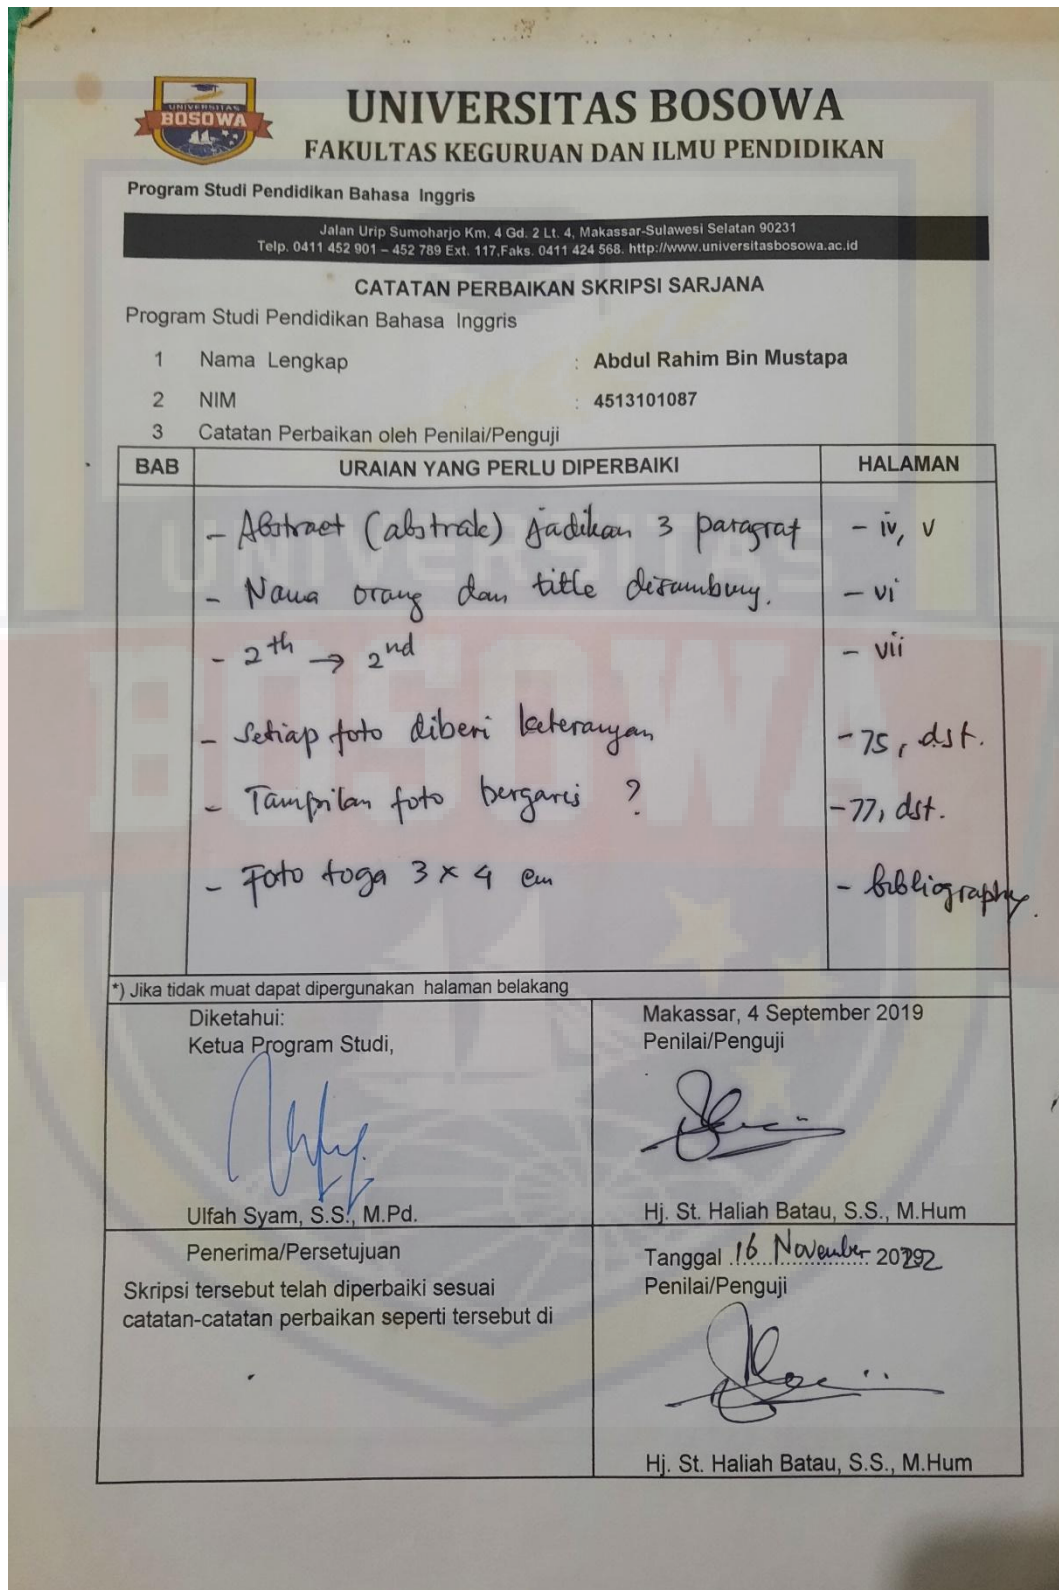 UNIVERSITAS
BOSOWA
UNIVERSITAS BOSOWA
FAKULTAS KEGURUAN DAN ILMU PENDIDIKAN
Program Studi Pendidikan Bahasa Inggris
Jalan Urip Sumoharjo Km. 4 Gd. 2 Lt. 4, Makassar-Sulawesi Selatan 90231
Telp. 0411 452 901 – 452 789 Ext. 117,Faks. 0411 424 568. http://www.universitasbosowa.ac.id
CATATAN PERBAIKAN SKRIPSI SARJANA
Program Studi Pendidikan Bahasa Inggris
1 Nama Lengkap : Abdul Rahim Bin Mustapa
2 NIM : 4513101087
3 Catatan Perbaikan oleh Penilai/Penguji
BAB URAIAN YANG PERLU DIPERBAIKI HALAMAN
- Abstract (abstrak) jadikan 3 paragraf - iv, v
- Nama orang dan title disambung. - vi
- 2th → 2nd - vii
- Setiap foto diberi keterangan - 75, dst.
- Tampilan foto bergaris ? - 77, dst.
- Foto toga 3 x 4 cm - bibliography.
UNIVERSITAS
BOSOWA
*) Jika tidak muat dapat dipergunakan halaman belakang
Diketahui:
Ketua Program Studi,
Ulfah Syam, S.S., M.Pd.
Makassar, 4 September 2019
Penilai/Penguji
Hj. St. Haliah Batau, S.S., M.Hum
Penerima/Persetujuan
Skripsi tersebut telah diperbaiki sesuai
catatan-catatan perbaikan seperti tersebut di
Tanggal 16 November 2022
Penilai/Penguji
Hj. St. Haliah Batau, S.S., M.Hum